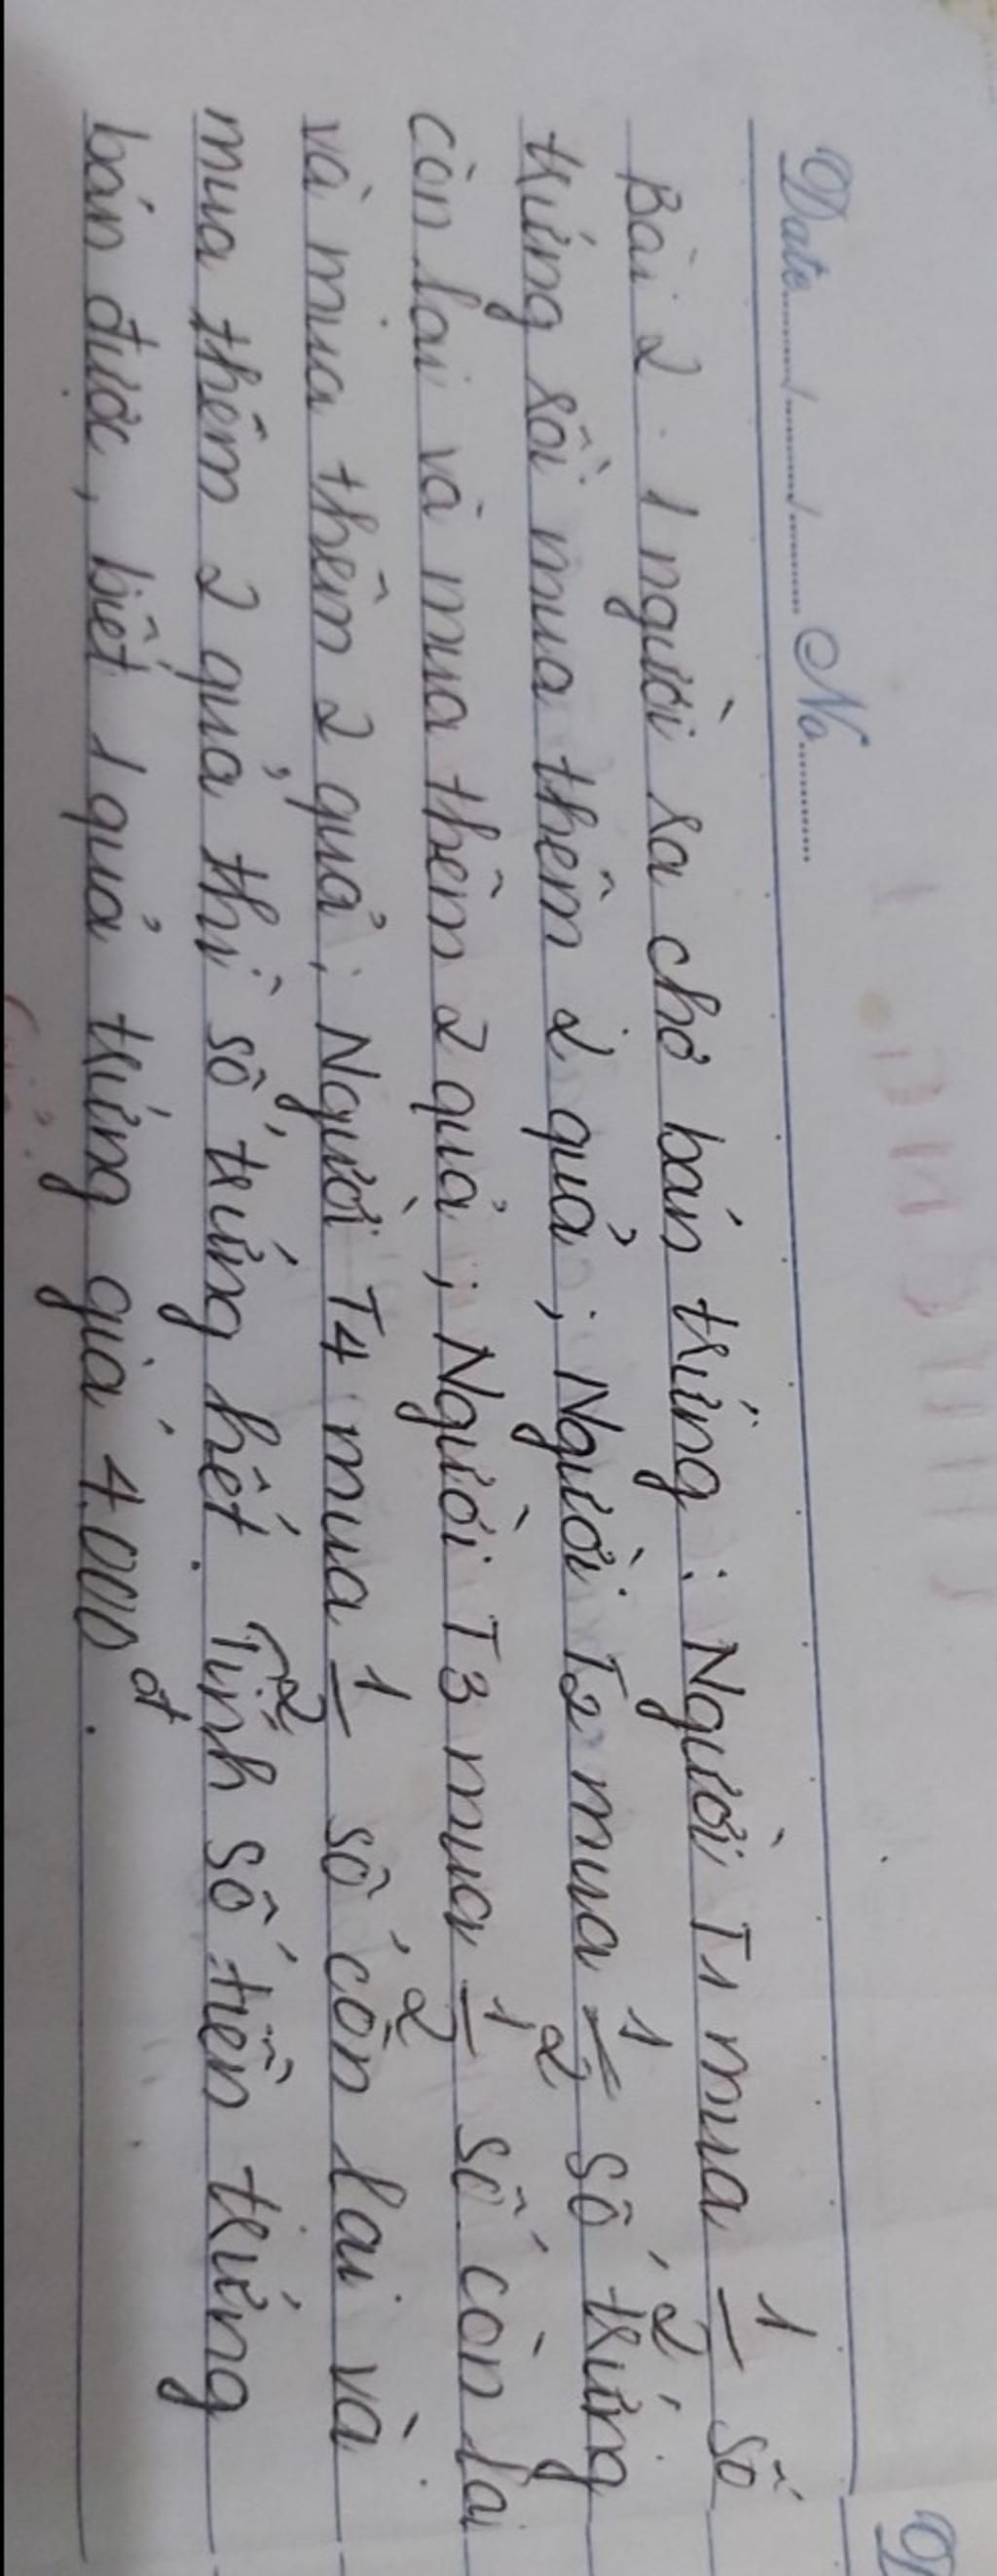 Date ......./......./....... No...........
Bài 2. 1 người ra chợ bán trứng: Người T1 mua 1/2 số
trứng rồi mua thêm 2 quả; Người T2 mua 1/2 số trứng
còn lại và mua thêm 2 quả; Người T3 mua 1/2 số còn lại
và mua thêm 2 quả; Người T4 mua 1/2 số còn lại và
mua thêm 2 quả thì số trứng hết. Tính số tiền trứng
bán được, biết 1 quả trứng giá 4.000đ.